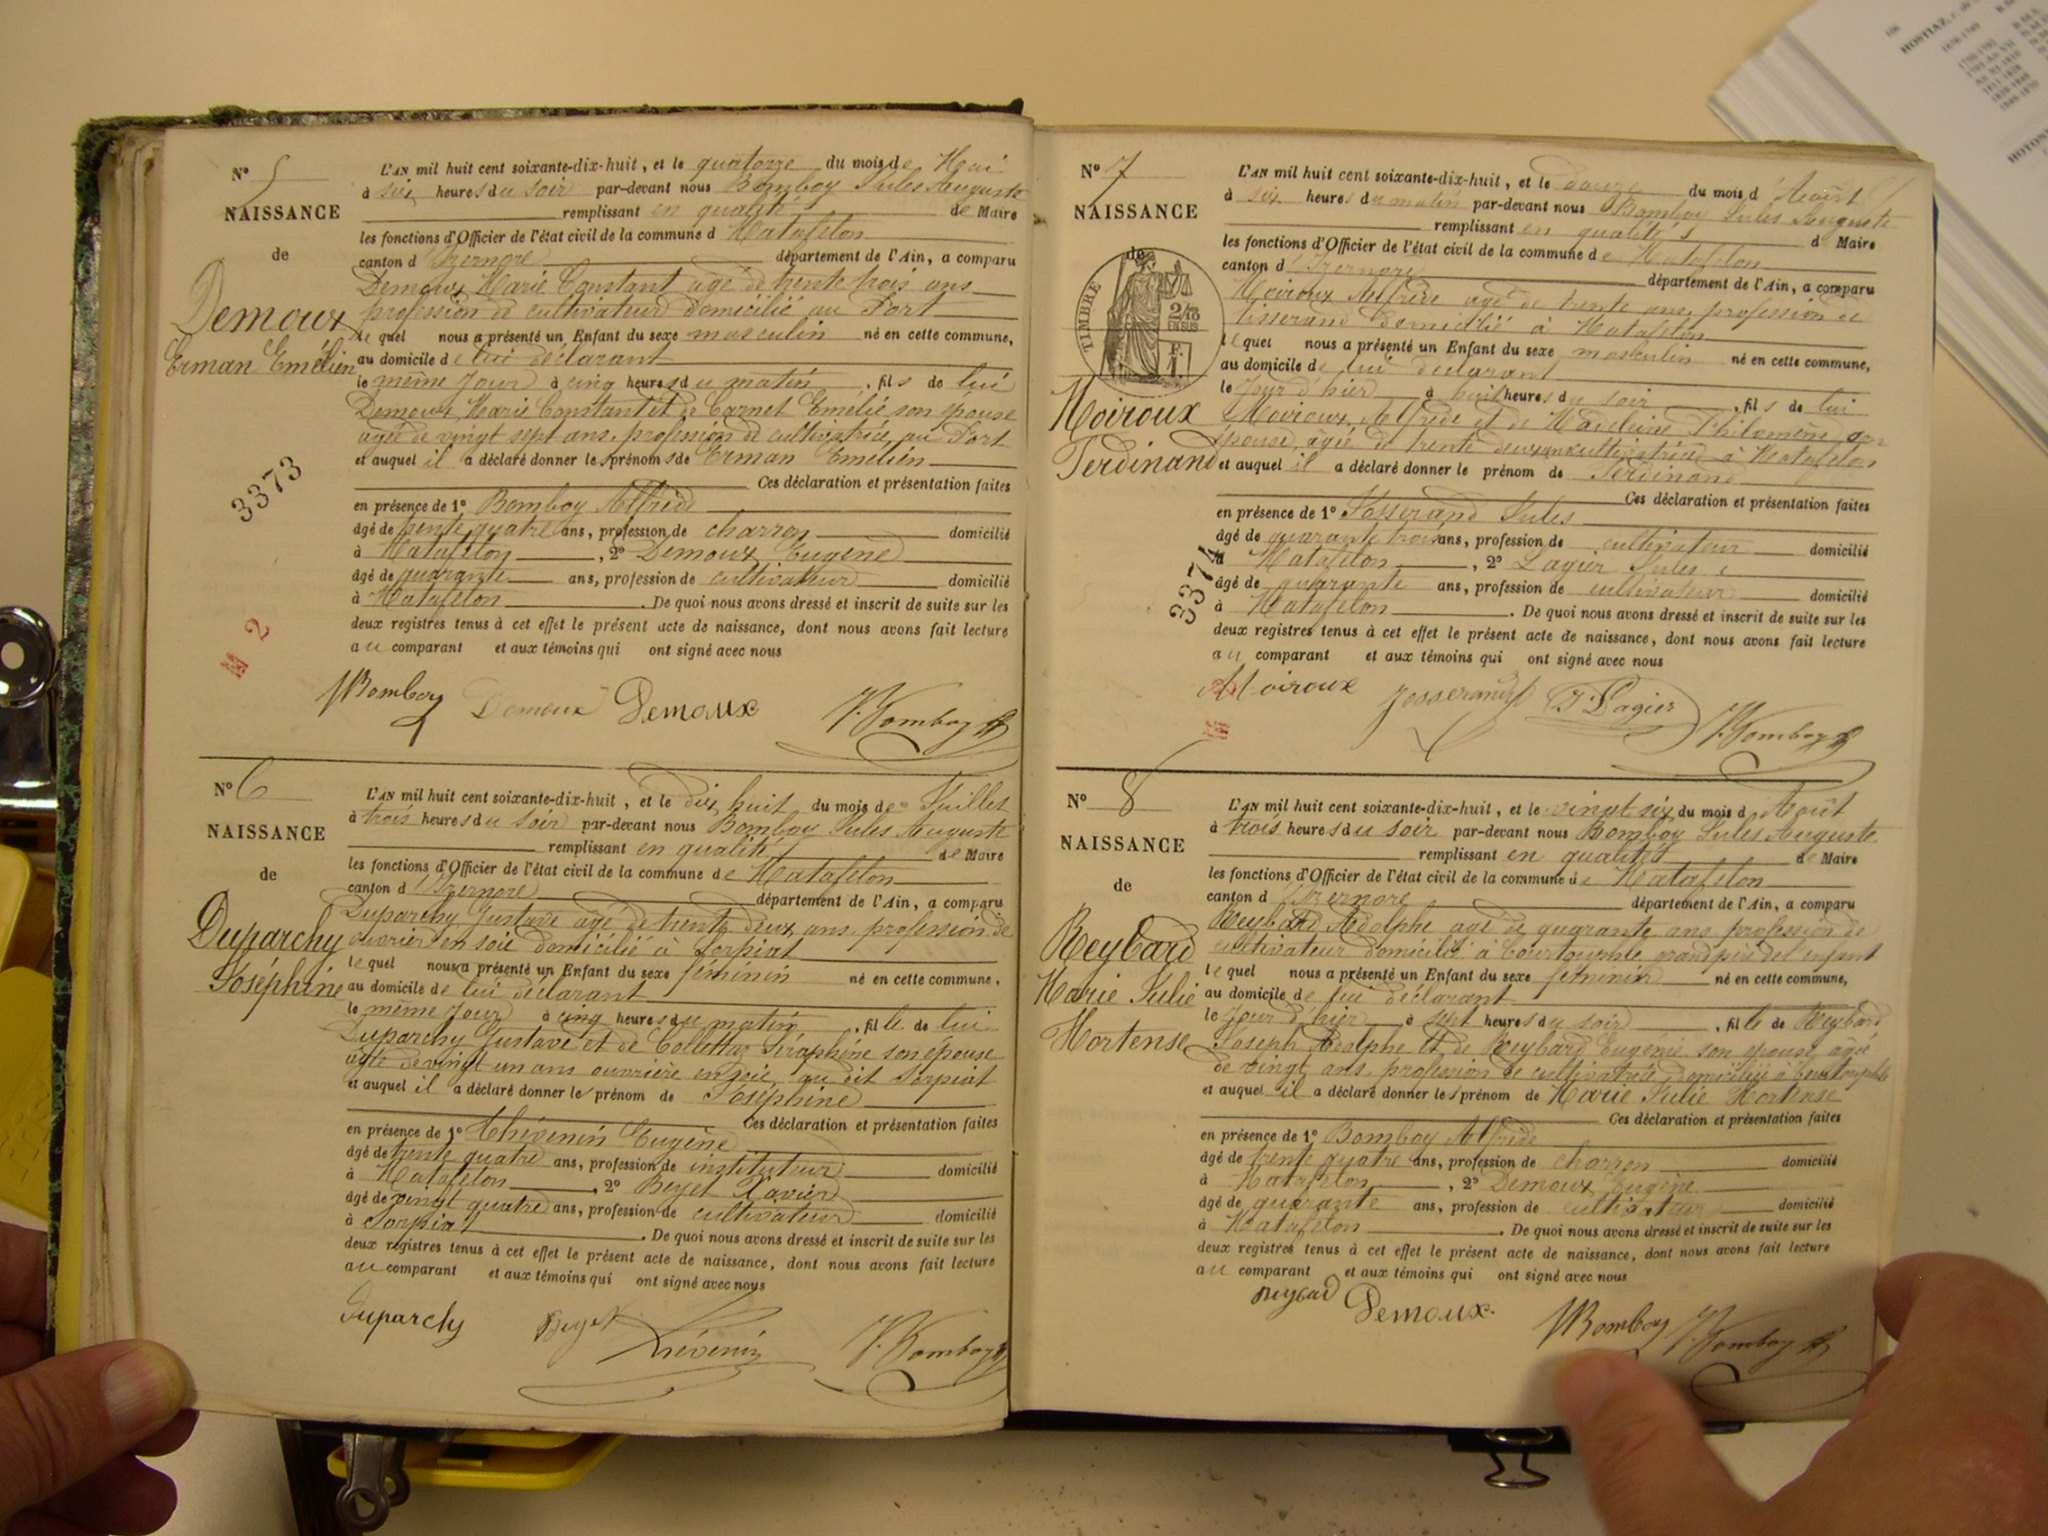 N° 5
NAISSANCE
de
Demoux
Erman Emélien
3373
L'AN mil huit cent soixante-dix-huit, et le quatorze du mois de Mai
à six heures du soir par-devant nous Bomboy Jules Auguste
remplissant en qualité de Maire
les fonctions d'Officier de l'état civil de la commune d Matafelon
canton d'Izernore département de l'Ain, a comparu
Demoux Marie Constant agé de trente trois ans
profession de cultivateur domicilié au Fort
le quel nous a présenté un Enfant du sexe masculin né en cette commune,
au domicile de lui déclarant
le même jour à cinq heures du matin, fils de lui
Demoux Marie Constant et de Carnet Emélie son épouse
agée de vingt sept ans, profession de cultivatrice au Fort
et auquel il a déclaré donner les prénoms de Erman Emélien
Ces déclaration et présentation faites
en présence de 1° Bomboy Alfrède
âgé de trente quatre ans, profession de charron domicilié
à Matafelon, 2° Demoux Eugène
âgé de quarante ans, profession de cultivateur domicilié
à Matafelon. De quoi nous avons dressé et inscrit de suite sur les
deux registres tenus à cet effet le présent acte de naissance, dont nous avons fait lecture
au comparant et aux témoins qui ont signé avec nous
Bomboy Demoux Demoux J. Bomboy
N° 6
NAISSANCE
de
Duparchy
Joséphine
L'AN mil huit cent soixante-dix-huit, et le dix huit du mois de Juillet
à trois heures du soir par-devant nous Bomboy Jules Auguste
remplissant en qualité de Maire
les fonctions d'Officier de l'état civil de la commune de Matafelon
canton d'Izernore département de l'Ain, a comparu
Duparchy Gustave agé de trente deux ans, profession de
ouvrier en soie domicilié à Corpiat
le quel nous a présenté un Enfant du sexe féminin né en cette commune,
au domicile de lui déclarant
le même jour à cinq heures du matin, fille de lui
Duparchy Gustave et de Collettaz Séraphine son épouse
agée de vingt un ans ouvrière en soie, au dit Corpiat
et auquel il a déclaré donner le prénom de Joséphine
Ces déclaration et présentation faites
en présence de 1° Thévenin Eugène
âgé de trente quatre ans, profession de instituteur domicilié
à Matafelon, 2° Beyet Xavier
âgé de vingt quatre ans, profession de cultivateur domicilié
à Corpiat. De quoi nous avons dressé et inscrit de suite sur les
deux registres tenus à cet effet le présent acte de naissance, dont nous avons fait lecture
au comparant et aux témoins qui ont signé avec nous
Duparchy Beyet Thévenin J. Bomboy
N° 7
NAISSANCE
de
TIMBRE
2/10
EN SUS
Moiroux
Ferdinand
3374
L'AN mil huit cent soixante-dix-huit, et le douze du mois d'Août
à six heures du matin par-devant nous Bomboy Jules Auguste
remplissant en qualité d Maire
les fonctions d'Officier de l'état civil de la commune de Matafelon
canton d'Izernore département de l'Ain, a comparu
Moiroux Alfrède agé de trente ans, profession de
tisserand domicilié à Matafelon
le quel nous a présenté un Enfant du sexe masculin né en cette commune,
au domicile de lui déclarant
le jour d'hier à huit heures du soir, fils de lui
Moiroux Alfrède et de Philomène son
épouse, agée de trente deux ans cultivatrice à Matafelon
et auquel il a déclaré donner le prénom de Ferdinand
Ces déclaration et présentation faites
en présence de 1° Josserand Jules
âgé de quarante trois ans, profession de cultivateur domicilié
à Matafelon, 2° Lagier Jules
âgé de quarante ans, profession de cultivateur domicilié
à Matafelon. De quoi nous avons dressé et inscrit de suite sur les
deux registres tenus à cet effet le présent acte de naissance, dont nous avons fait lecture
au comparant et aux témoins qui ont signé avec nous
Moiroux Josserand J. Lagier J. Bomboy
N° 8
NAISSANCE
de
Reybard
Marie Julie
Hortense
L'AN mil huit cent soixante-dix-huit, et le vingt six du mois d'Août
à trois heures du soir par-devant nous Bomboy Jules Auguste
remplissant en qualité de Maire
les fonctions d'Officier de l'état civil de la commune de Matafelon
canton d'Izernore département de l'Ain, a comparu
Reybard Adolphe agé de quarante ans, profession de
cultivateur domicilié à Courtouphle, grand père de l'enfant
le quel nous a présenté un Enfant du sexe féminin né en cette commune,
au domicile de lui déclarant
le jour d'hier à sept heures du soir, fille de Reybard
Joseph Adolphe et de Reybard Eugénie son épouse, agée
de vingt ans, profession de cultivatrice, domiciliée à Courtouphle
et auquel il a déclaré donner les prénom de Marie Julie Hortense
Ces déclaration et présentation faites
en présence de 1° Bomboy Alfrède
âgé de trente quatre ans, profession de charron domicilié
à Matafelon, 2° Demoux Eugène
âgé de quarante ans, profession de cultivateur domicilié
à Matafelon. De quoi nous avons dressé et inscrit de suite sur les
deux registres tenus à cet effet le présent acte de naissance, dont nous avons fait lecture
au comparant et aux témoins qui ont signé avec nous
Reybard Demoux Bomboy J. Bomboy